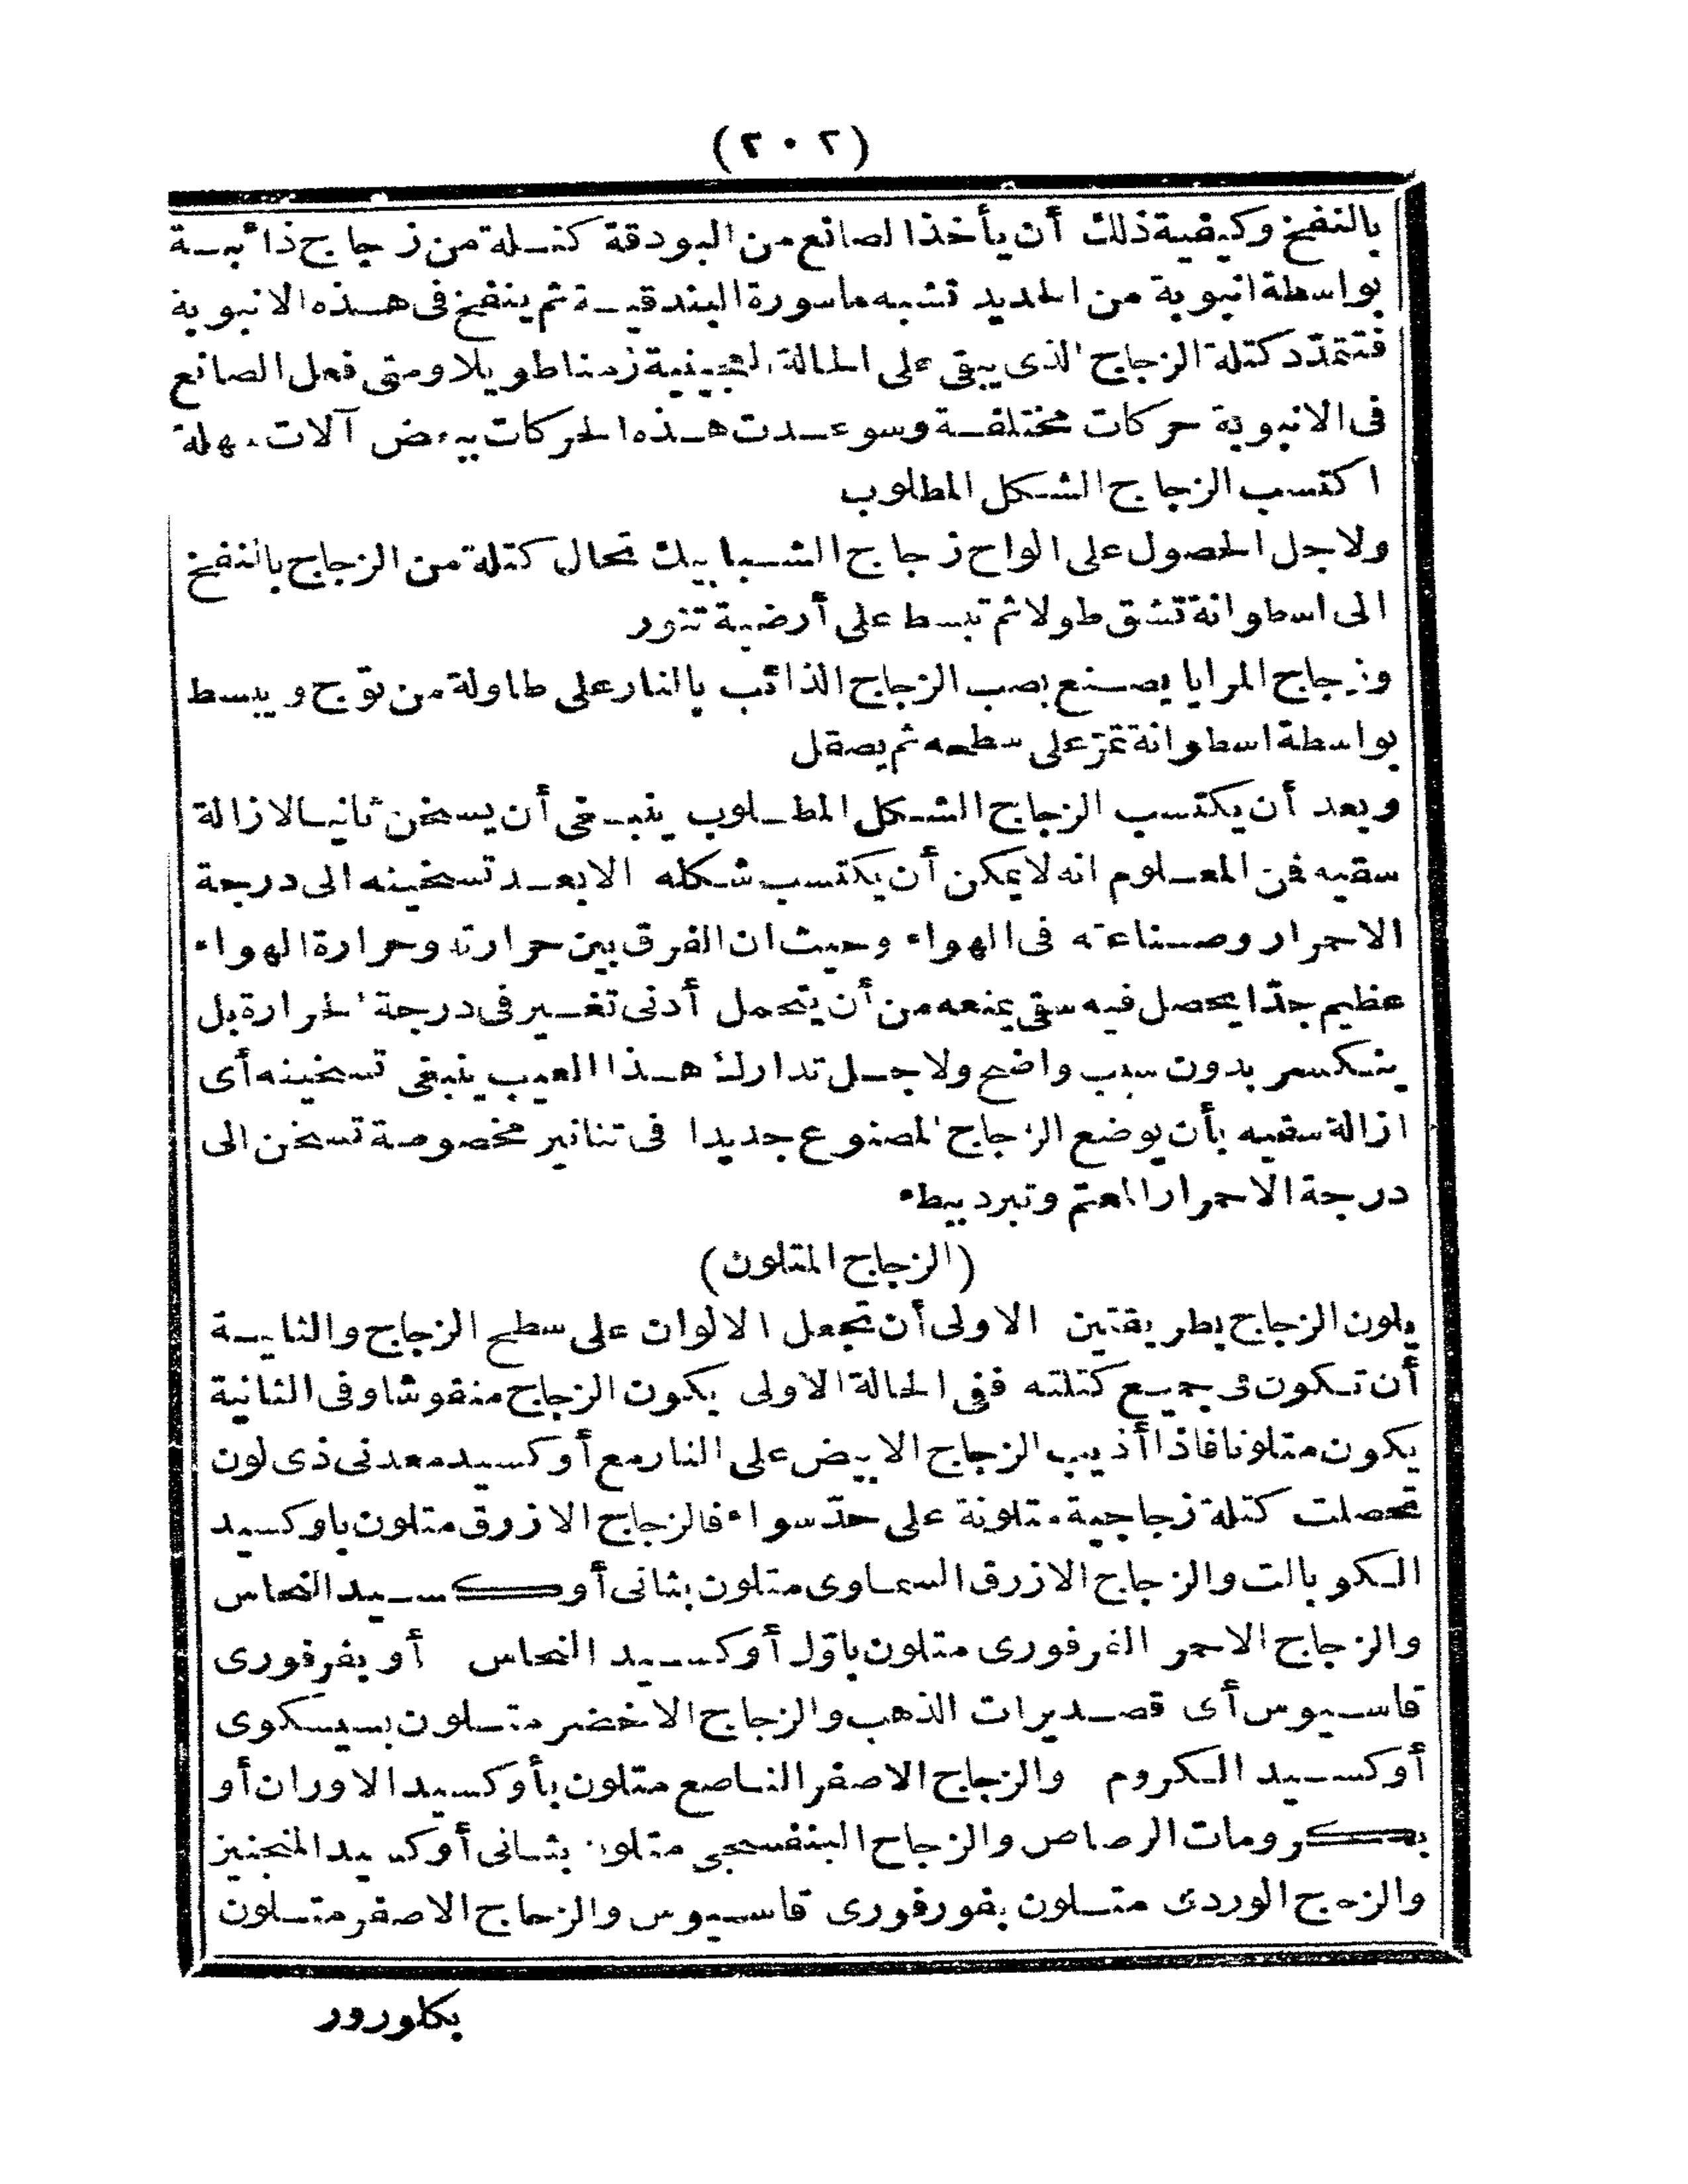 (٢٠٢)
بالنفخ وكيفية ذلك أن يأخذ الصانع من البودقة كتلة من زجاج ذائبة
بواسطة انبوبة من الحديد تشبه ماسورة البندقية ثم ينفخ فى هذه الانبوبة
فتتمدّد كتلة الزجاج الذى يبقى على الحالة العجينية زمنا طويلا ومتى فعل الصانع
فى الانبوبة حركات مختلفة وسوعدت هذه الحركات ببعض آلات سهلة
اكتسب الزجاج الشكل المطلوب
ولاجل الحصول على الواح زجاج الشبابيك تحال كتلة من الزجاج بالنفخ
الى اسطوانة تشق طولا ثم تبسط على أرضية تنور
وزجاج المرايا يصنع بصب الزجاج الذائب بالنار على طاولة من توج ويبسط
بواسطة اسطوانة تمرّ على سطحه ثم يصقل
وبعد أن يكتسب الزجاج الشكل المطلوب ينبغى أن يسخن ثانيا لازالة
سقيه فمن المعلوم انه لا يمكن أن يكتسب شكله الا بعد تسخينه الى درجة
الاحمرار وصناعته فى الهواء وحيث ان الفرق بين حرارته وحرارة الهواء
عظيم جدّا يحصل فيه سقى يمنعه من أن يتحمل أدنى تغير فى درجة الحرارة بل
ينكسر بدون سبب واضح ولاجل تدارك هذا العيب ينبغى تسخينه أى
ازالة سقيه بأن يوضع الزجاج المصنوع جديدا فى تنانير مخصوصة تسخن الى
درجة الاحمرار المعتم وتبرد ببطء
(الزجاج المتلون)
يلون الزجاج بطريقتين الاولى أن تجعل الالوان على سطح الزجاج والثانية
أن تكون فى جميع كتلته ففى الحالة الاولى يكون الزجاج منقوشا وفى الثانية
يكون متلونا فاذا أذيب الزجاج الابيض على النار مع أوكسيد معدنى ذى لون
تحصلت كتلة زجاجية متلونة على حدّ سواء فالزجاج الازرق متلون باوكسيد
الكوبالت والزجاج الازرق السماوى متلون بثانى أوكسيد النحاس
والزجاج الاحمر الفرفورى متلون باوّل أوكسيد النحاس أو بفرفورى
قاسيوس أى قصديرات الذهب والزجاج الاخضر متلون بسيسكوى
أوكسيد الكروم والزجاج الاصفر الناصع متلون بأوكسيد الاوران أو
بكرومات الرصاص والزجاج البنفسجى متلون بثانى أوكسيد المنجنيز
والزجاج الوردى متلون بفورفورى قاسيوس والزجاج الاصفر متلون
بكلورور